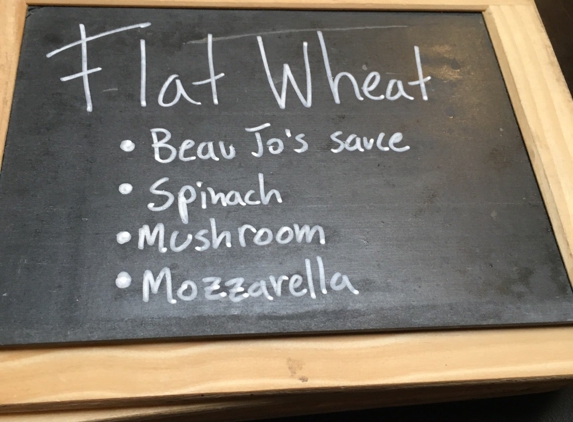 Flat Wheat
• Beau Jo's sauce
• Spinach
• Mushroom
• Mozzarella